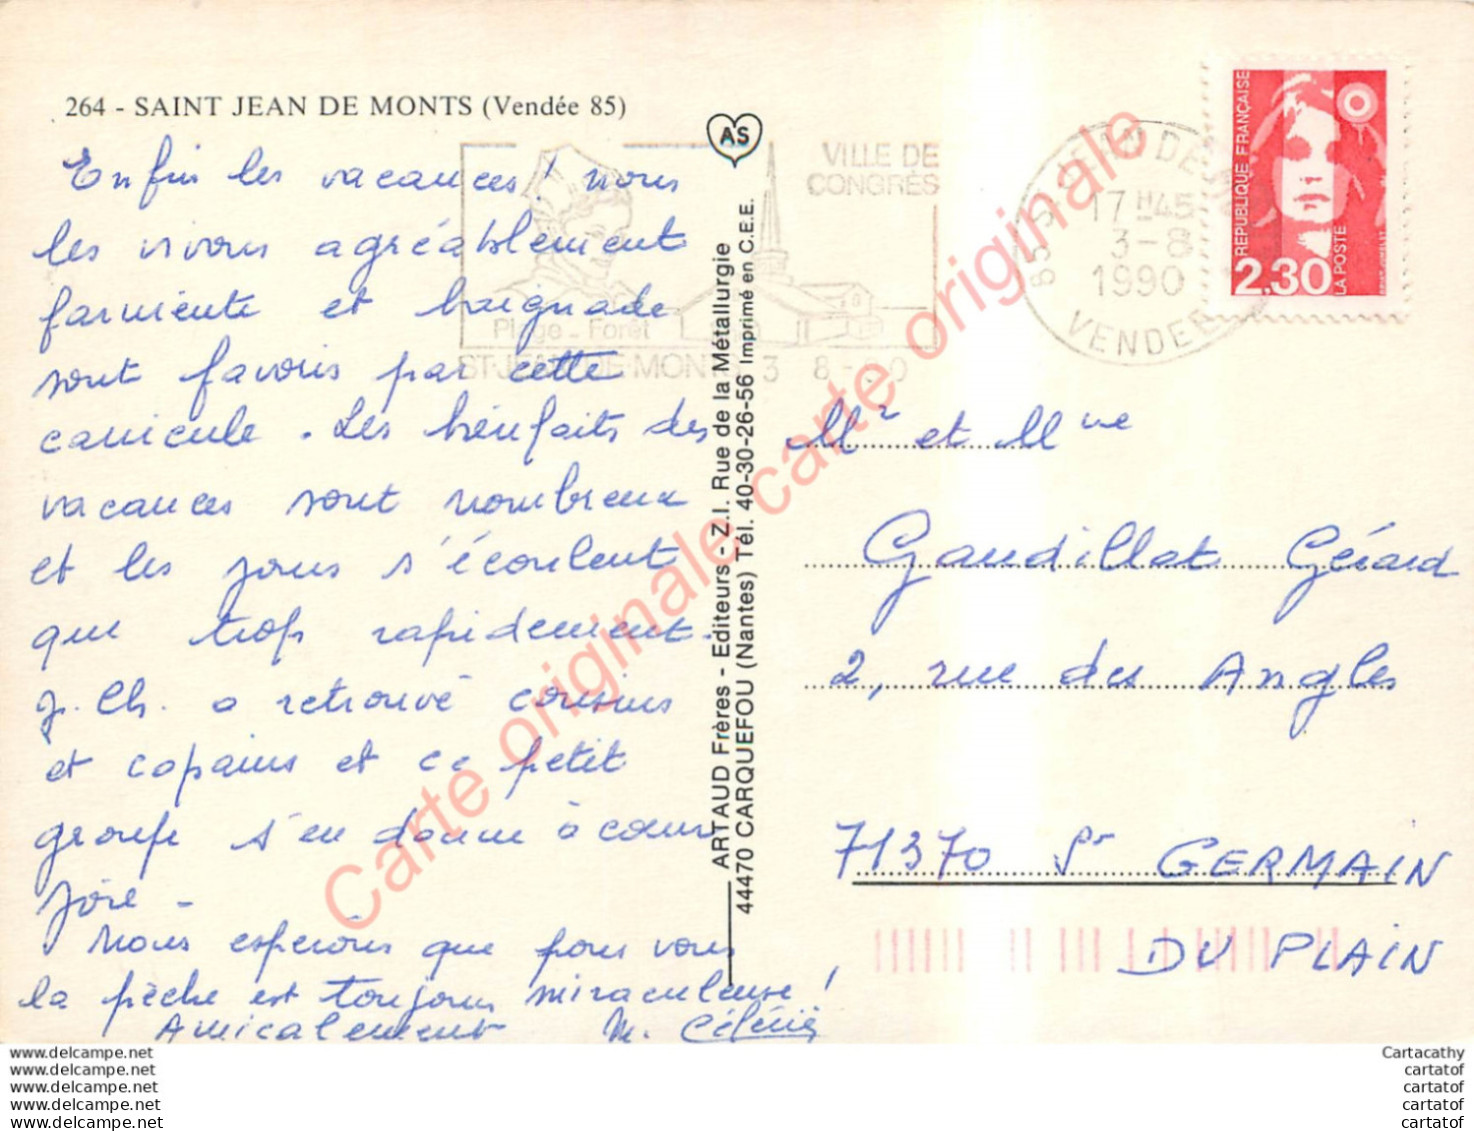 264 - SAINT JEAN DE MONTS (Vendée 85)
Enfin les vacances! nous
les vivons agréablement
farniente et baignade
sont favoris par cette
canicule. Les bienfaits des
vacances sont nombreux
et les jours s'écoulent
que trop rapidement.
J. Ch. a retrouvé cousins
et copains et ce petit
groupe s'en donne à coeur
joie -
Nous espérons que pour vous
la pêche est toujours miraculeuse!
Amicalement M.
AS
ARTAUD Frères - Editeurs - Z.I. Rue de la Métallurgie
44470 CARQUEFOU (Nantes) Tél. 40-30-26-56 Imprimé en C.E.E.
VILLE DE
CONGRÈS
Plage - Forêt
ST-JEAN-DE-MONTS 3 8 -
85 ST-JEAN DE
17 H 45
3-8
1990
VENDEE
REPUBLIQUE FRANÇAISE
2,30
LA POSTE
Mr et Mme
Gaudillat Gérard
2, rue des Angles
71370 St GERMAIN
DU PLAIN
Carte originale carte originale
www.delcampe.net
www.delcampe.net
www.delcampe.net
www.delcampe.net
www.delcampe.net
Cartacathy
cartatof
cartatof
cartatof
cartatof